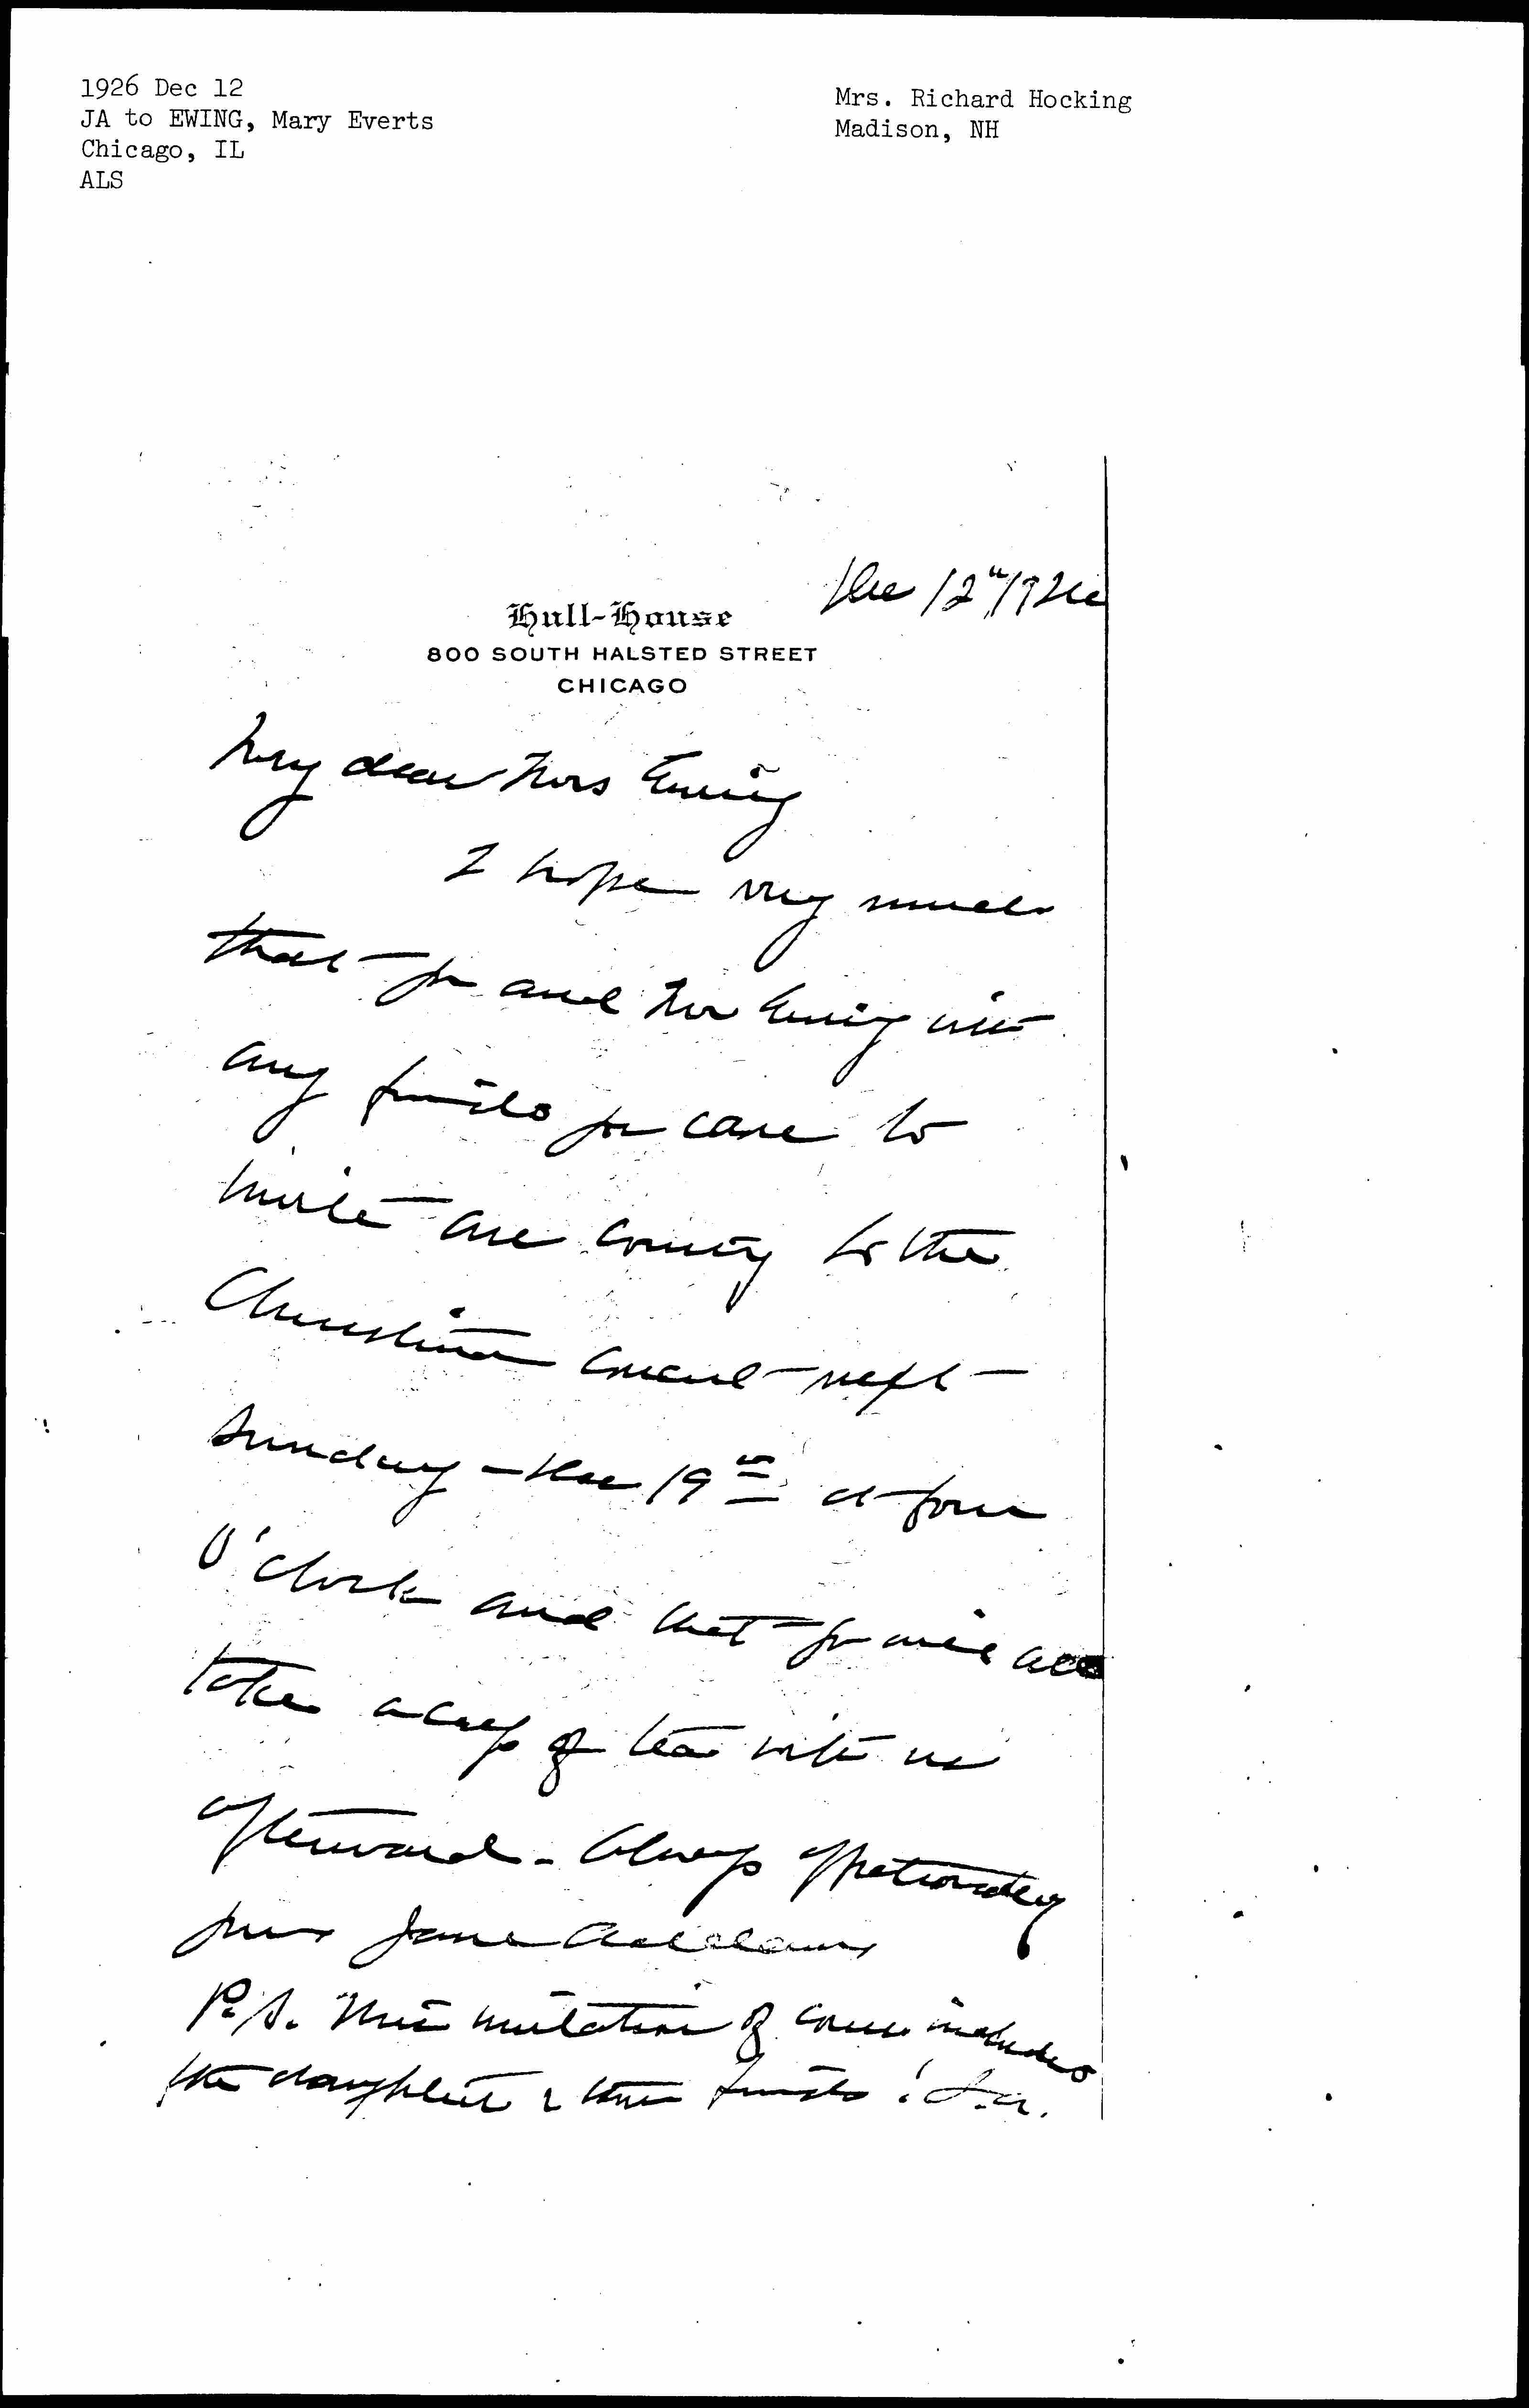 1926 Dec 12
JA to EWING, Mary Everts
Chicago, IL
ALS
Mrs. Richard Hocking
Madison, NH
Dec 12" 1926
Hull-House
800 SOUTH HALSTED STREET
CHICAGO
My dear Mrs Ewing
I hope very much
that you and Mr Ewing with
any friends you care to
invite are coming to the
Christmas concert next
Sunday - Dec 19th at four
o'clock and that you will all
take a cup of tea with us
afterward - Always affectionately
yours Jane Addams
P.S. This invitation of course includes
the daughters & their friends! J.A.